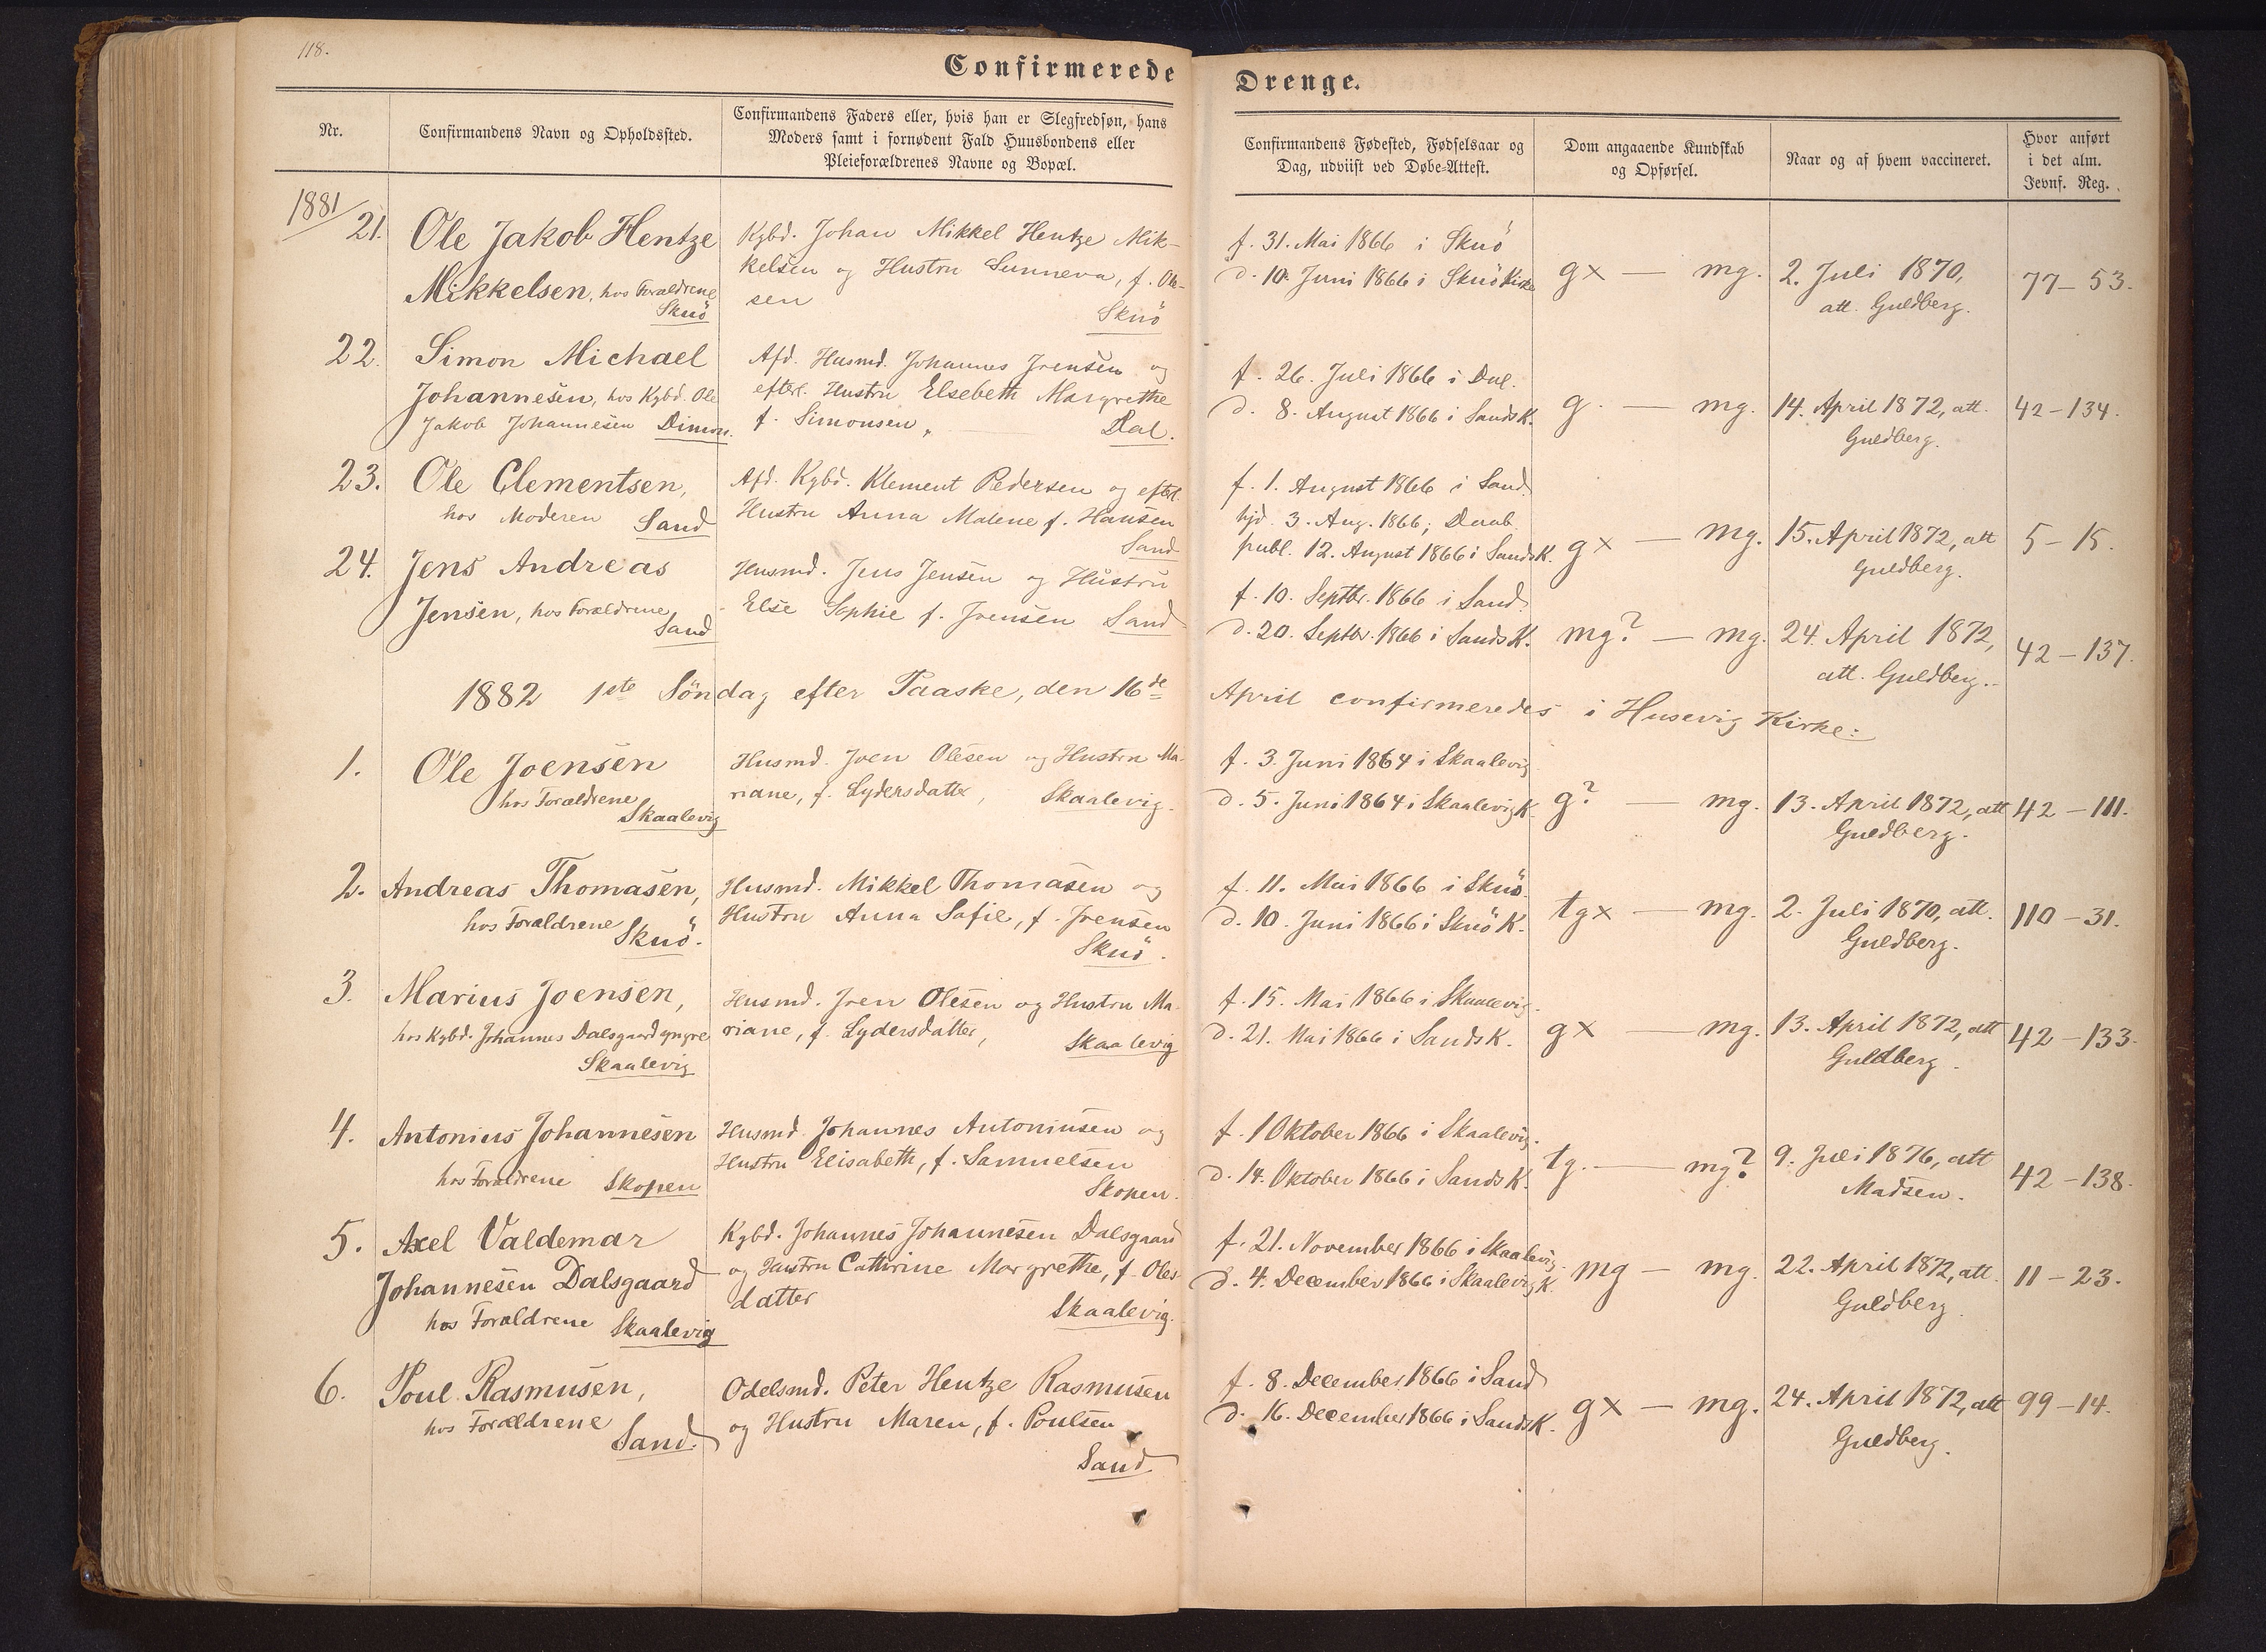 118.
Confirmerede
Drenge.
Nr.
Confirmandens Navn og Opholdssted.
Confirmandens Faders eller, hvis han er Slegfredsøn, hans
Moders samt i fornødent Fald Huusbondens eller
Pleieforældrenes Navne og Bopæl.
Confirmandens Fødested, Fødselsaar og
Dag, udviist ved Døbe-Attest.
Dom angaaende Kundskab
og Opførsel.
Naar og af hvem vaccineret.
Hvor anført
i det alm.
Jevnf. Reg.
1881
21.
Ole Jakob Hentze
Mikkelsen, hos Forældrene
Skuö
Kgbd. Johan Mikkel Hentze Mik-
kelsen og Hustru Sunneva, f. Ole-
sen
Skuö
f. 31. Mai 1866 i Skuö
d. 10. Juni 1866 i Skuö Kirke
gx — mg.
2. Juli 1870,
att. Guldberg.
77 – 53.
22.
Simon Michael
Johannesen, hos Kgbd. Ole
Jakob Johannesen Dimon.
Afd. Husmd. Johannes Joensen og
efterl. Hustru Elsebeth Margrethe
f. Simonsen, Dal.
f. 26. Juli 1866 i Dal.
d. 8. August 1866 i Sands K.
g. — mg.
14. April 1872, att.
Guldberg.
42 – 134.
23.
Ole Clementsen,
hos Moderen Sand
Afd. Kgbd. Klement Pedersen og efterl.
Hustru Anna Malene f. Hansen
Sand
f. 1. August 1866 i Sand.
hjd. 3. Aug. 1866; Daab.
publ. 12. August 1866 i Sands K.
gx — mg.
15. April 1872, att
Guldberg.
5 – 15.
24.
Jens Andreas
Jensen, hos Forældrene
Sand
Husmd. Jens Jensen og Hustru
Else Sophie f. Joensen Sand
f. 10. Septbr. 1866 i Sand.
d. 20. Septbr. 1866 i Sands K.
mg? — mg.
24. April 1872,
att. Guldberg.
42 – 137.
1882 1ste Söndag efter Paaske, den 16de April confirmeredes i Husevig Kirke:
1.
Ole Joensen
hos Forældrene
Skaalevig
Husmd. Joen Olesen og Hustru Ma-
riane, f. Lydersdatter, Skaalevig.
f. 3. Juni 1864 i Skaalevig
d. 5. Juni 1864 i Skaalevig K.
g? — mg.
13. April 1872, att
Guldberg.
42 – 111.
2.
Andreas Thomasen,
hos Forældrene Skuö.
Husmd. Mikkel Thomasen og
Hustru Anna Sofie, f. Joensen
Skuö.
f. 11. Mai 1866 i Skuö.
d. 10. Juni 1866 i Skuö K.
tgx — mg.
2. Juli 1870, att.
Guldberg.
110 – 31.
3.
Marius Joensen,
hos Kgbd. Johannes Dalsgaard yngre
Skaalevig
Husmd. Joen Olesen og Hustru Ma-
riane, f. Lydersdatter,
Skaalevig
f. 15. Mai 1866 i Skaalevig.
d. 21. Mai 1866 i Sands K.
gx — mg.
13. April 1872, att
Guldberg.
42 – 133.
4.
Antonius Johannesen
hos Forældrene Skopen
Husmd. Johannes Antoniusen og
Hustru Elisabeth, f. Samuelsen
Skopen.
f. 1 Oktober 1866 i Skaalevig.
d. 14. Oktober 1866 i Sands K.
tg. — mg?
9. Juli 1876, att
Madsen.
42 – 138.
5.
Axel Valdemar
Johannesen Dalsgaard
hos Forældrene Skaalevig
Kgbd. Johannes Johannesen Dalsgaard
og Hustru Cathrine Margrethe, f. Oles-
datter
Skaalevig.
f. 21. November 1866 i Skaalevig.
d. 4. December 1866 i Skaalevig K.
mg — mg.
22. April 1872, att.
Guldberg.
11 – 23.
6.
Poul Rasmusen,
hos Forældrene
Sand.
Odelsmd. Peter Hentze Rasmusen
og Hustru Maren, f. Poulsen
Sand
f. 8. December 1866 i Sand
d. 16. December 1866 i Sands K.
gx — mg.
24. April 1872, att
Guldberg.
99 – 14.